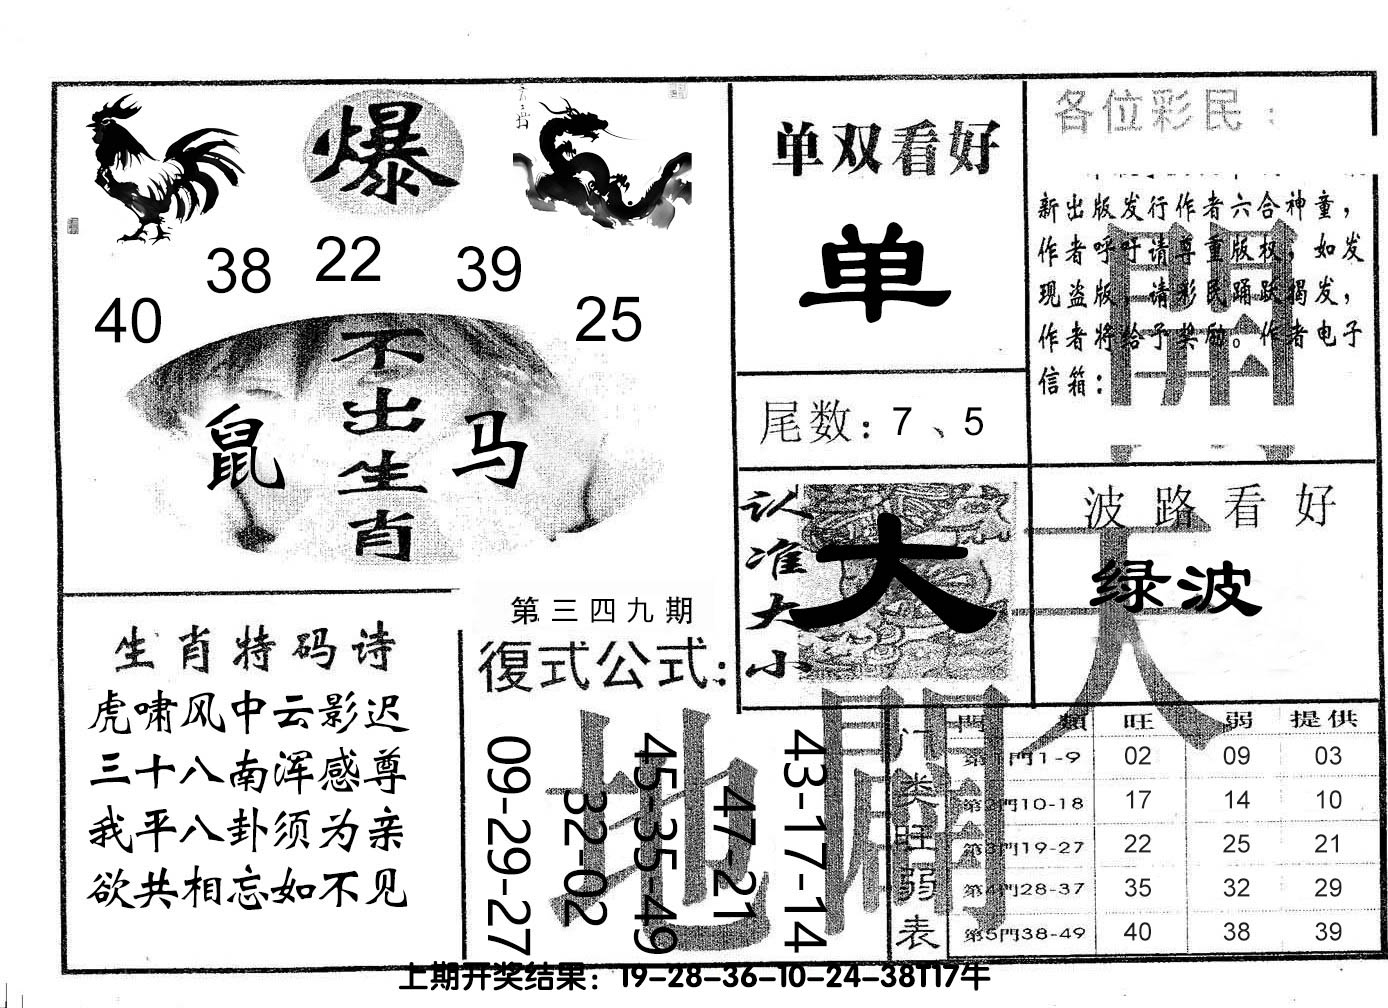 爆
38 22 39
40 25
不出生肖
鼠 马
单双看好
单
尾数：7、5
认准大小
大
各位彩民：
新出版发行作者六合神童，
作者呼吁请尊重版权，如发
现盗版，请彩民踊跃揭发，
作者将给予奖励。作者电子
信箱：
波路看好
绿波
生肖特码诗
虎啸风中云影迟
三十八南浑感尊
我平八卦须为亲
欲共相忘如不见
第三四九期
復式公式：
09-29-27
32-02
45-35-49
47-21
43-17-14
天
地
開
門類 旺 弱 提供
门类旺弱表
第1門1-9 02 09 03
第2門10-18 17 14 10
第3門19-27 22 25 21
第4門28-37 35 32 29
第5門38-49 40 38 39
上期开奖结果：19-28-36-10-24-38T17牛